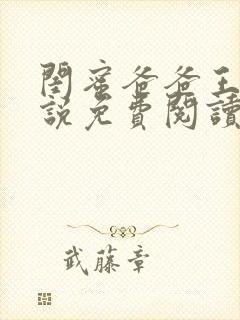 閨蜜爸爸王
說免費閱讀
武藤章